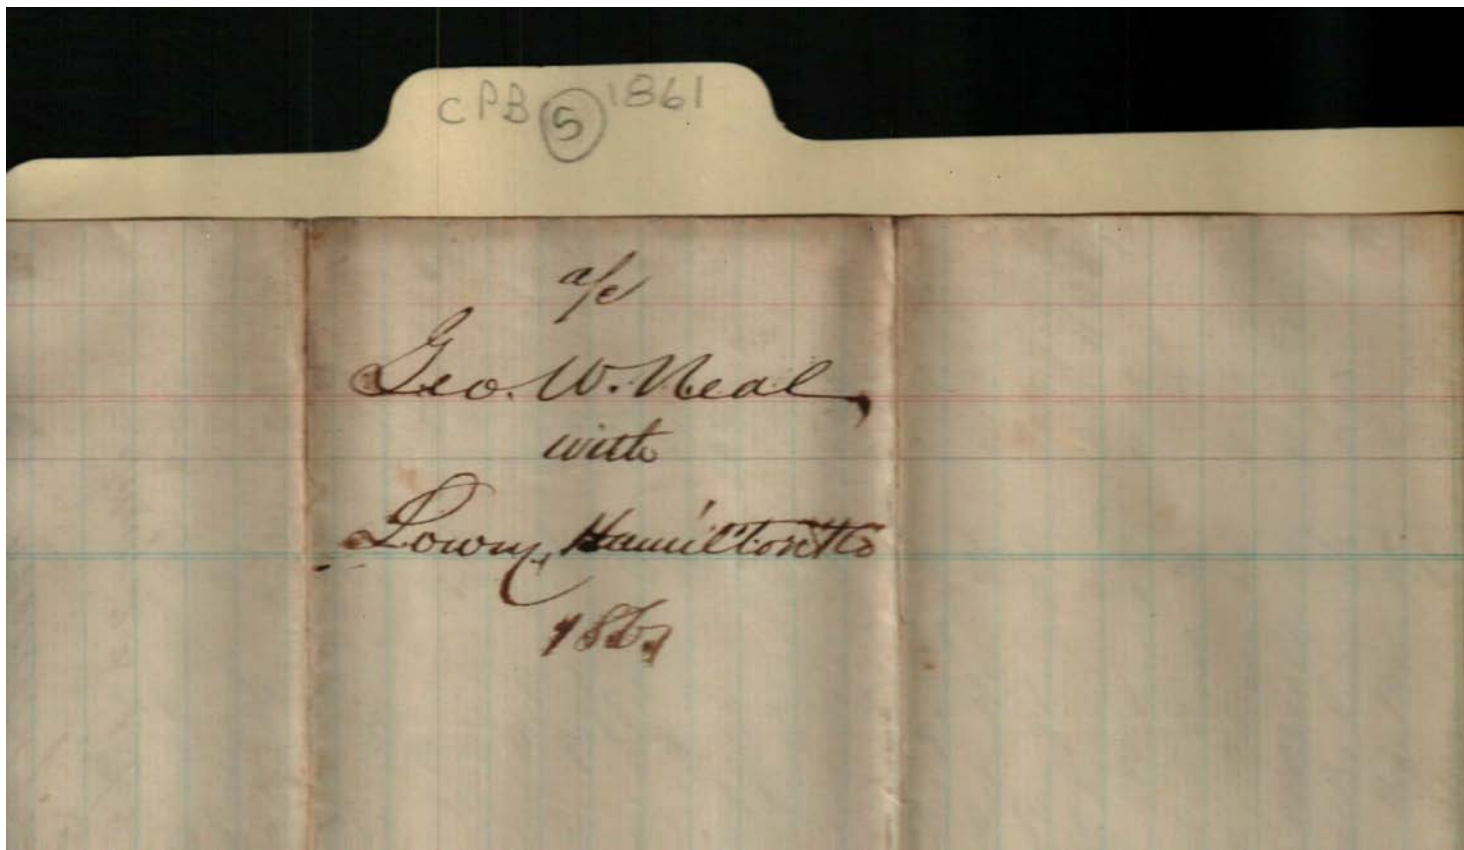 CPB 5 1861
a/c
Geo. W. Neal,
with
Lowry, Hamilton & Co
1861